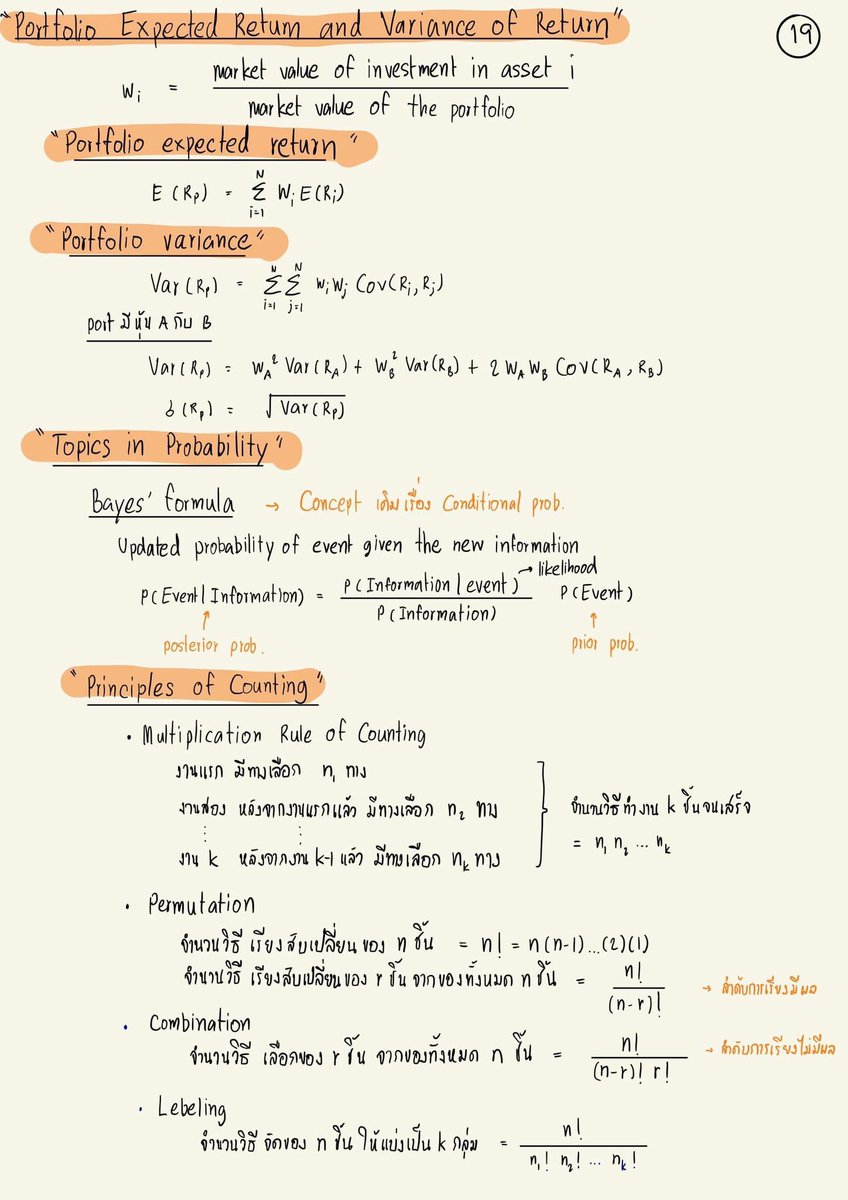 "Portfolio Expected Return and Variance of Return"
19
wᵢ = market value of investment in asset i / market value of the portfolio
"Portfolio expected return"
E(Rₚ) = Σᵢ₌₁ᴺ WᵢE(Rᵢ)
"Portfolio variance"
Var(Rₚ) = Σᵢ₌₁ᴺ Σⱼ₌₁ᴺ wᵢwⱼ Cov(Rᵢ,Rⱼ)
port มีหุ้น A กับ B
Var(Rₚ) = W_A² Var(R_A) + W_B² Var(R_B) + 2 W_A W_B Cov(R_A, R_B)
δ(Rₚ) = √Var(Rₚ)
"Topics in Probability"
Bayes' formula → Concept เดิมเรื่อง Conditional prob.
Updated probability of event given the new information
P(Event|Information) = P(Information|event) / P(Information) P(Event)
→ likelihood
↑ posterior prob.
↑ prior prob.
"Principles of Counting"
• Multiplication Rule of Counting
งานแรก มีทางเลือก n₁ ทาง
งานสอง หลังจากงานแรกแล้ว มีทางเลือก n₂ ทาง
⋮ ⋮
งาน k หลังจากงาน k-1 แล้ว มีทางเลือก nₖ ทาง
จำนวนวิธีทำงาน k ชิ้นจนเสร็จ
= n₁ n₂ ... nₖ
• Permutation
จำนวนวิธี เรียงสับเปลี่ยนของ n ชิ้น = n! = n(n-1)...(2)(1)
จำนวนวิธี เรียงสับเปลี่ยนของ r ชิ้น จากของทั้งหมด n ชิ้น = n! / (n-r)! → ลำดับการเรียงมีผล
• Combination
จำนวนวิธี เลือกของ r ชิ้น จากของทั้งหมด n ชิ้น = n! / (n-r)! r! → ลำดับการเรียงไม่มีผล
• Lebeling
จำนวนวิธี จัดของ n ชิ้น ให้แบ่งเป็น k กลุ่ม = n! / n₁! n₂! ... nₖ!